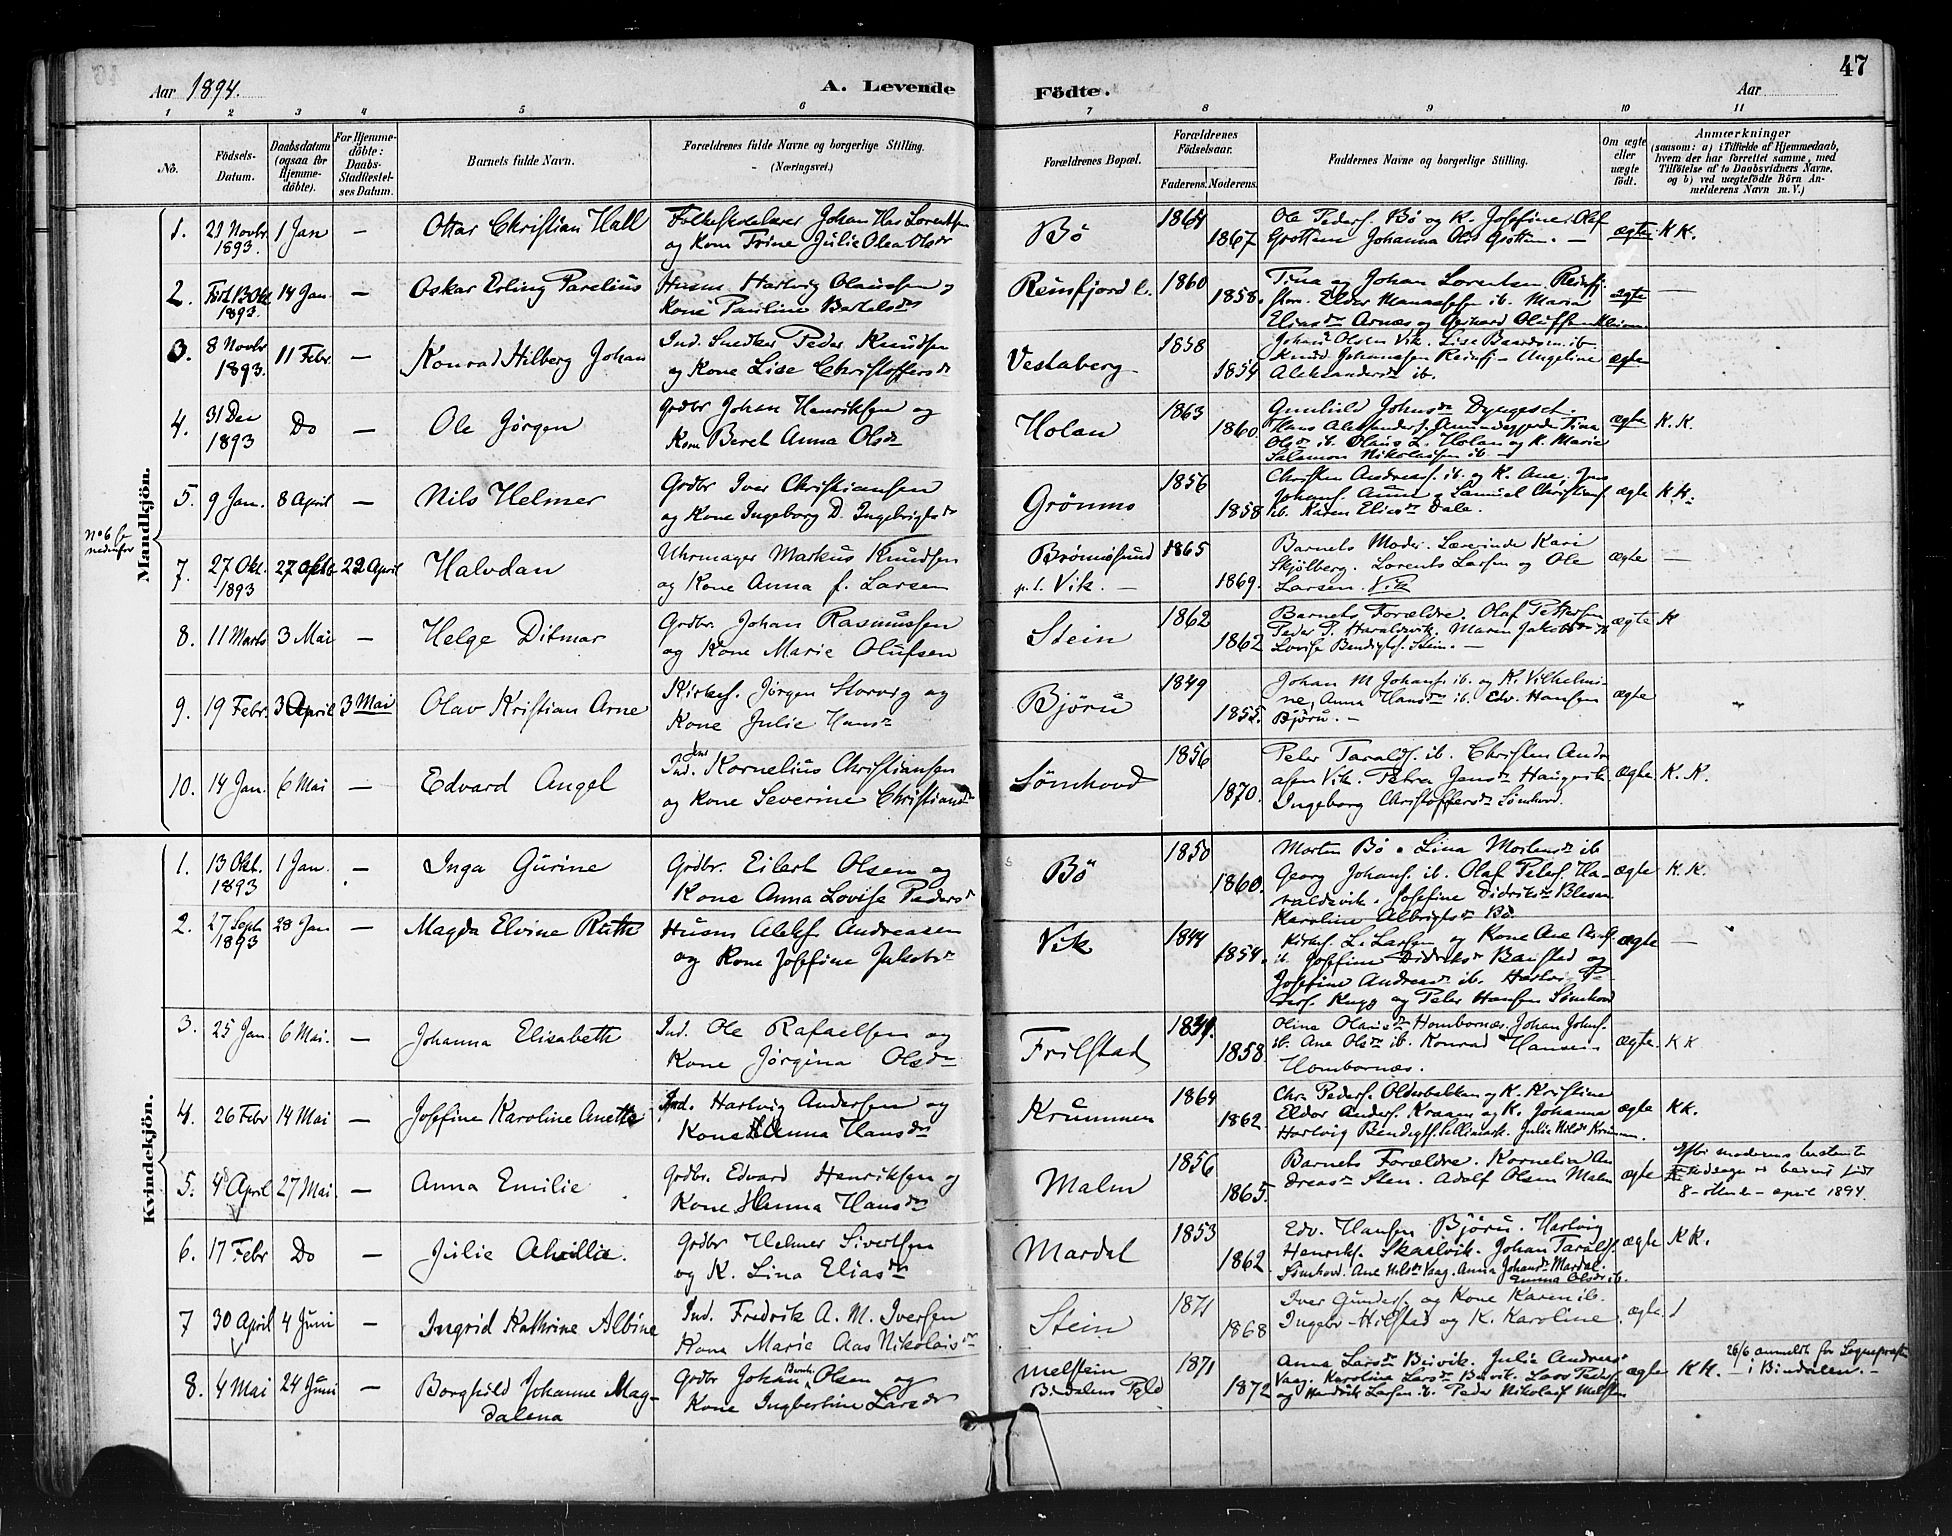 Aar 1894.
A. Levende Födte.
47
Aar
1 2 3 4 5 6 7 8 9 10 11
No.
Födsels-Datum.
Daabsdatum (ogsaa for Hjemme-döbte).
For Hjemme-döbte: Daabs-Stadfæstel-ses Datum.
Barnets fulde Navn.
Forældrenes fulde Navne og borgerlige Stilling. (Næringsvei.)
Forældrenes Bopæl.
Forældrenes Födselsaar.
Faderens. Moderens.
Faddernes Navne og borgerlige Stilling.
Om ægte eller uægte födt.
Anmærkninger
(saasom: a) i Tilfælde af Hjemmedaab, hvem der har forrettet samme, med Tilföielse af to Daabsvidners Navne, og b) ved uægtefödte Börn An-melderens Navn m. V.)
Mandkjön.
1. 21 Novbr 1893. 1 Jan — Ottar Christian Hall
og Kone Trine Julie Olea Olsdr
Bö 1864 1867
Ole Peders. Bö og K. Josefine, Olaf
Grottem Johanna Olsdr Grottem. —
ægte K K.
2. 1893. 14 Jan. — Oskar Erling Parelius
Husm. Hartvig Olaussen og
Kone Pauline Bertelsdr
Reinfjord 1860 1858.
Tina og Johan Lorentsen Reinfj.
Elder Manassesen ib. Maria
Eliasdr Arnæs og Gerhard Oluffsen
ægte —
3. 8 Novbr 1893. 11 Febr. — Konrad Hilberg Johan
Ind. Snedker Peder Knudsen
og Kone Lise Christoffersdr
Vestaberg 1858 1854
Johan Olsen Vik. Lise Baardsen ib.
Knud Johanssen Reinfj. Angeline
Aleksandersdr ib.
ægte
4. 31 Dec 1893 Do — Ole Jörgen
Grdbr Johan Henriksen og
Kone Beret Anna Olsdr
Holan 1863 1860.
Gunhild Johnsdr Dyngeset.
Hans Aleksanders. Tina
Olsdr ib. Olaus L. Holan og K. Marie
Salamon Nikolaisen ib.
ægte K. K.
5. 9 Jan. 8 April — Nils Helmer
Grdbr Iver Christiansen
og Kone Ingeborg D. Ingebrigtsdr
Grönmo 1856 1858
Christen Andreass. ib. og K. Ane, Jens
Johans. Aune Samuel Christians.
ib. Karen Eliasdr Dale.
ægte K. K.
No 6 se nedenfor
7. 27 Okt. 1893 22 April Halvdan
Uhrmager Markus Knudsen
og Kone Anna f. Larsen
Brönnösund p. t. Vik. — 1865 1869.
Barnets Moder. Lærerinde Kari
Skjölberg. Lorents Larsen og Ole
Larsen. Vik
ægte —
8. 11 Marts 3 Mai — Helge Ditmar
Grdbr. Johan Rasmussen
og Kone Marie Olufsen
Stein 1862 1862
Barnets Forældre. Olaf Pettersen
Peder P. Haraldsvik. Maren Jakobsdr
Lovise Bendigts. Stein. —
ægte K
9. 19 Febr. 3 April 3 Mai Olav Kristian Arne
Kirkes. Jörgen Storvig og
Kone Julie Hansdr
Björu 1849 1855.
Johan M Johans. ib. og K. Vilhelmi-
ne, Anna Hansdr ib. Edv. Hansen
Björu. —
ægte
10. 14 Jan. 6 Mai — Edvard Angel
Ind. Kornelius Christiansen
og Kone Severine Christiansdr
Sömhovd 1856 1870.
Peter Taralds. ib. Christen Andre-
asen Vik. Petra Jensdr Haugvik
Ingeborg Christoffersdr Sömhovd.
ægte K. K.
Kvindekjön.
1. 13 Okt. 1893 1 Jan. — Inga Gurine
Grdbr. Eilert Olsen og
Kone Anna Lovise Pedersdr
Bö 1850 1860.
Morten Bö. Lina Mortensdr ib
Georg Johans. ib. Olaf Peters. Ha-
raldsvik. Josefine Didriksdr Blesen
Karoline Albrigtsdr Bö
ægte K. K.
2. 27 Septb 1893 28 Jan — Magda Elvine Ruth
Husm Andreasen
og Kone Josefine Jakobsdr
Vik 1844 1854.
Kirkes. L. Larsen og Kone Ane
ib. Josefine Didriksdr og
Josefine Andreasdr ib. Hartvig Pe-
ders. Kugg og Peter Hansen Sömhovd
ægte —
3. 25 Jan. 6 Mai. — Johanna Elisabeth
Ind. Ole Rafaelsen og
Kone Jörgina Olsdr
Frilstad 1858.
Olina Olausdr Hombornæs. Johan Johns.
ib. Ane Olsdr ib. Konrad Hansen
Hombornæs.
ægte. K K
4. 26 Febr 14 Mai — Josefine Karoline Anette
Ind. Hartvig Andersen og
Kone Anna Hansdr
Krummen 1864 1862.
Chr. Peders. Olderbakken og K. Kristine
Eldor Anders. Kraagen og K. Johanna
Hartvig Bendigts. Julie Nilsdr Krumm.
ægte KK.
5. 4 April 27 Mai — Anna Emilie
Grdbr. Edvard Henriksen og
Kone Hanna Hansdr
Malm 1856 1865.
Barnets Forældre. Kornelia An
dreasdr Sten. Adolf Olsen Malm
ægte
Efter moderens bestemte
udsagn er barnet födt
8 – ottende – april 1894.
6. 17 Febr Do — Julie Alvillie.
Grdbr Helmer Sivertsen
og K. Lina Eliasdr
Mardal 1853 1862.
Edv. Hansen Björu. Hartvig
Henriks. Skarlvik. Johan Taralds.
Sömhovd. Ane Nilsdr Vaag. Anna Johansdr Mardal.
Emma Olsdr ib.
ægte K K.
7 30 April 4 Juni — Ingrid Kathrine Albine
Ind. Fredrik A. M. Iversen
Kone Marie Aas Nikolaisdr
Stein 1871 1868
Iver Gunders. og Kone Karen ib.
Ingebr. Hilstad og K. Karoline
ægte
8. 4 Mai 24 Juni — Borghild Johanne Mag-
dalena
Grdbr Johan Olsen og
Kone Ingbertine Larsdr
Melstein
Bindalens 1871 1872
Anna Larsdr Bievik. Julia Andreasdr
Vaag. Karolina Larsdr Lars Peders.
og Hendrik Larsen ib. Peder Nikolais. Melstein
ægte K K.
26/6 anmeldt for Sognepræst
i Bindalen. —